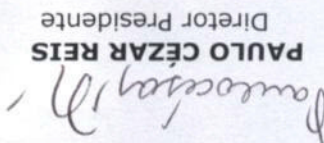 PAULO CÉZAR REIS
Diretor Presidente